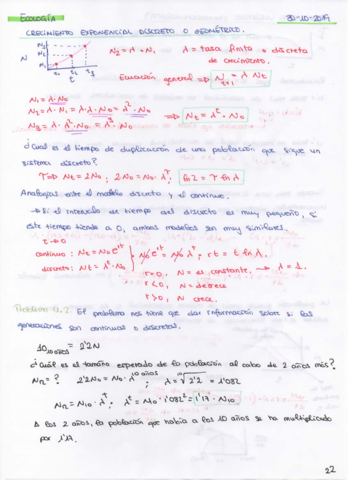 ECOLOGÍA 30-10-2019
CRECIMIENTO EXPONENCIAL DISCRETO O GEOMÉTRICO.
N
N3
N2
N1
t1 t2 t3
N2 = λ · N1 λ = tasa finita o discreta
de crecimiento.
Ecuación general => N t+1 = λ Nt
N1 = λ · N0
N2 = λ · N1 = λ · λ · N0 = λ² · N0 => Nt = λ^t · N0
N3 = λ · λ² · N0 = λ³ · N0
¿Cuál es el tiempo de duplicación de una población que sigue un
sistema discreto?
T => Nt = 2N0 ; 2N0 = N0 · λ^t ; ln2 = T ln λ
Analogías entre el modelo discreto y el continuo.
→ Si el intervalo de tiempo del discreto es muy pequeño, si
este tiempo tiende a 0, ambos modelos son muy similares.
τ → 0
continuo: Nt = N0 e^rt
discreto: Nt = λ^t · N0
N0 e^rt = N0 λ^t ; rt = t ln λ.
r=0, N = es constante, → λ = 1.
r<0, N = decrece
r>0, N crece.
Problema 9.2: El problema nos tiene que dar información sobre si las
generaciones son continuas o discretas.
10 años = 2'2N
¿Cuál es el tamaño esperado de la población al cabo de 2 años más?
N12 = ? 2'2N0 = N0 · λ^10 años ; λ = ¹⁰√2'2 = 1'082
N12 = N10 · λ^t ; λ^t = N10 · 1'082² = 1'17 · N10
A los 2 años, la población que había a los 10 años se ha multiplicado
por 1'17.
22